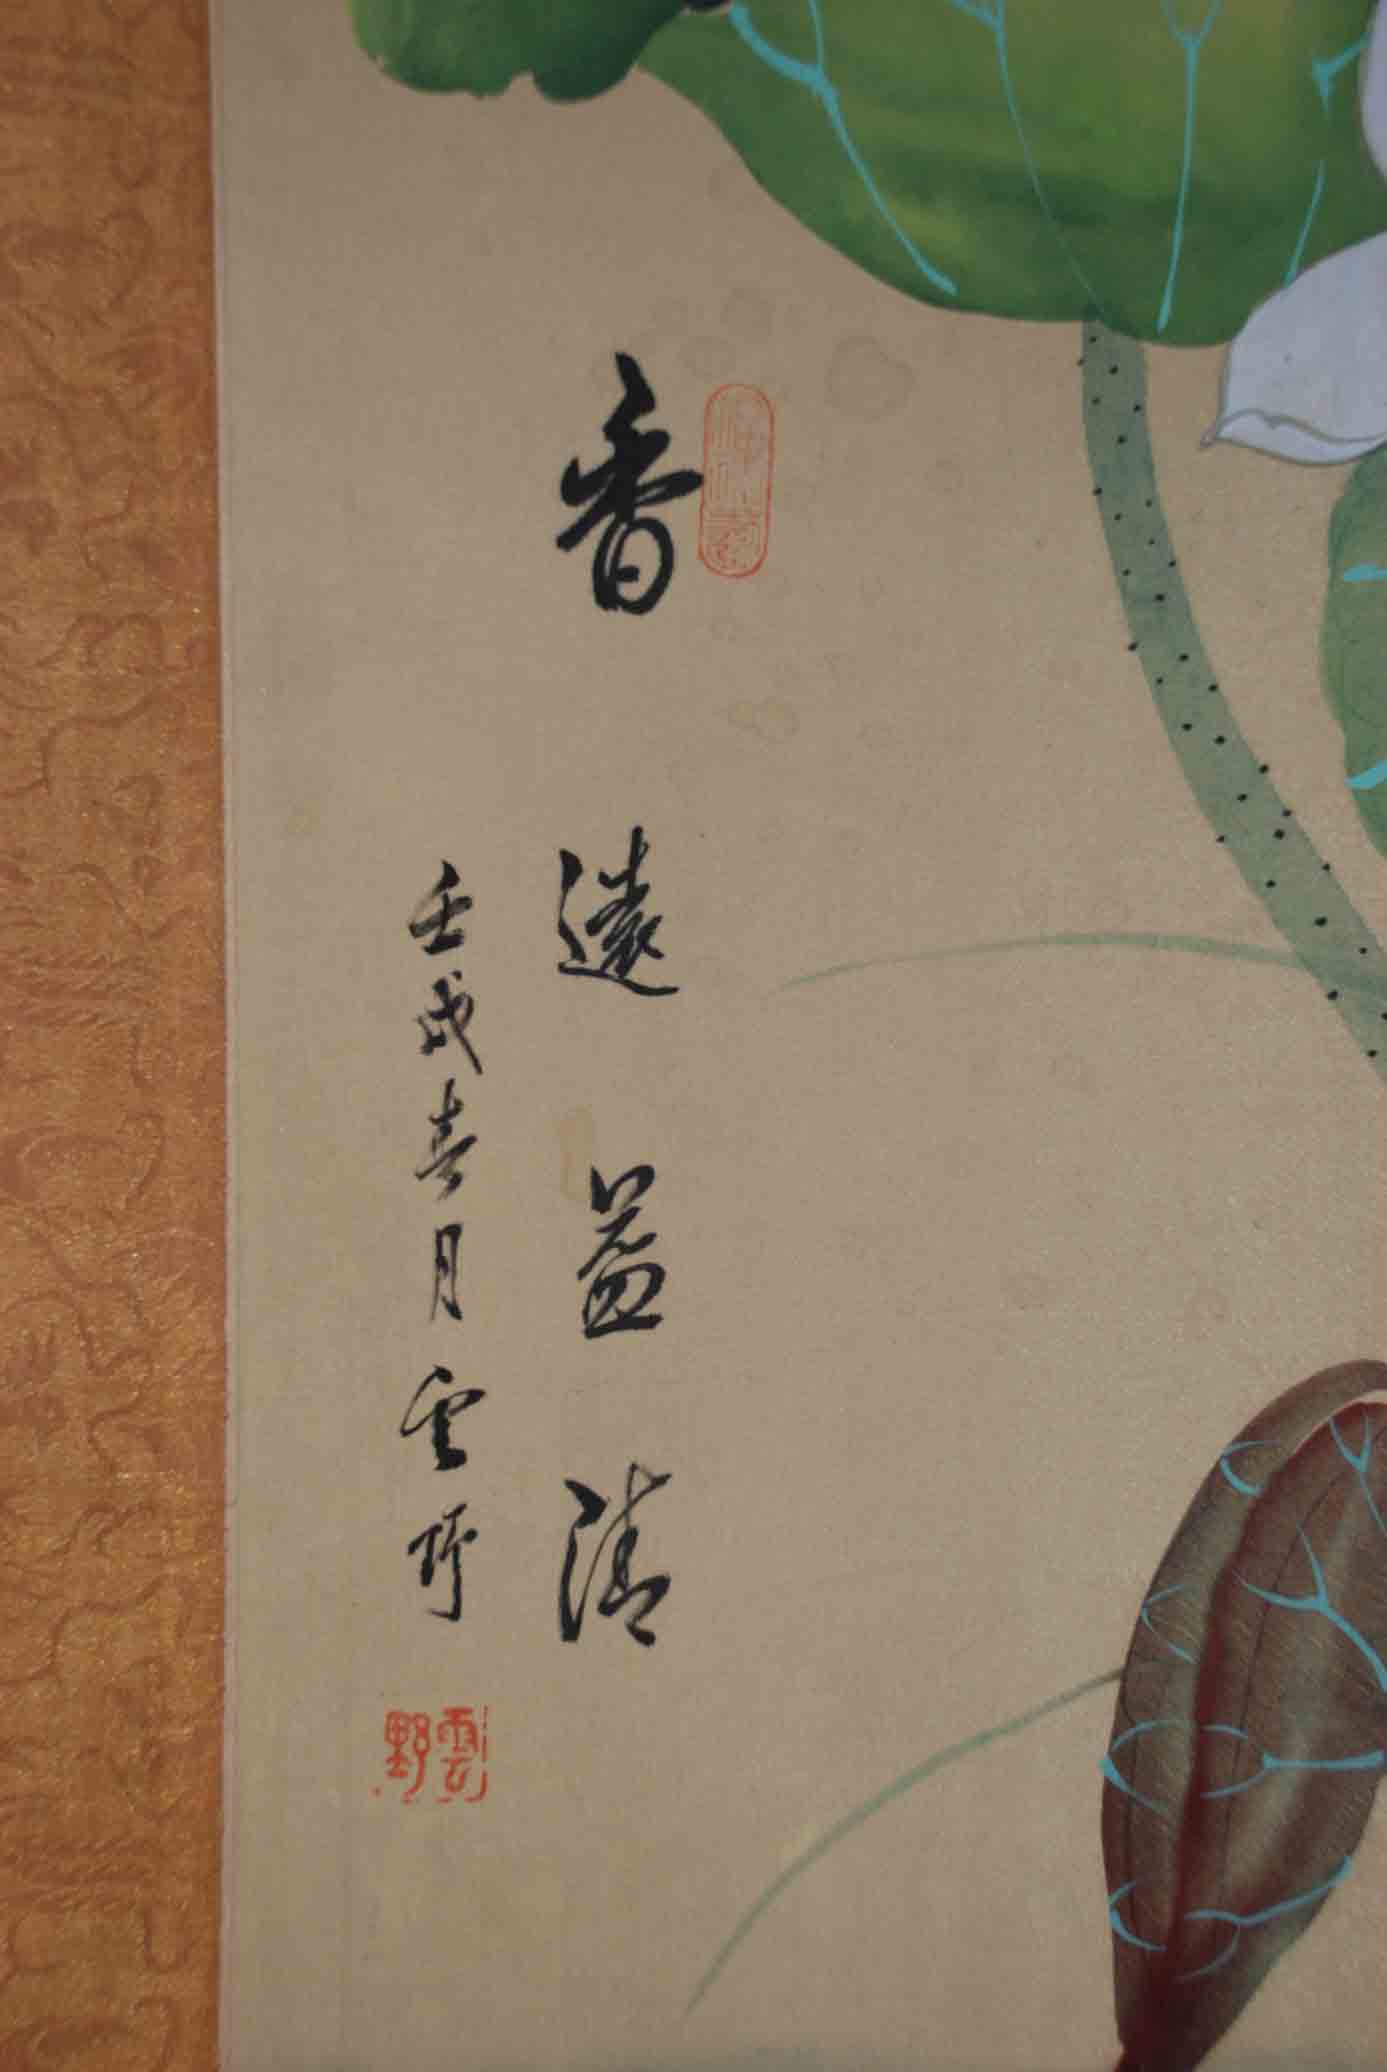 香遠益清
壬戌春月雲野
雲野